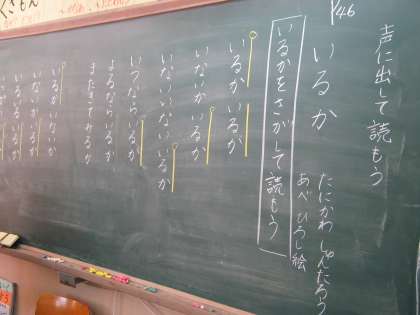 P46
声に出して読もう
いるか
たにかわ しゅんたろう
あべ ひろし 絵
いるかをさがして読もう
いるか いるか
いないか いるか
いない いない いるか
いつなら いるか
よるなら いるか
また きて みるか
いるか いないか
いないか いるか
いるいる いるか